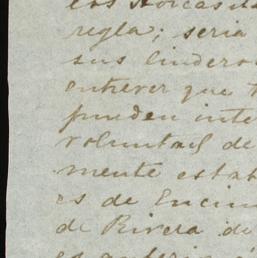 regla; seria
sus lindero
entrever que
pueden inte
voluntad de
mente estab
es de Encin
de Rivera de